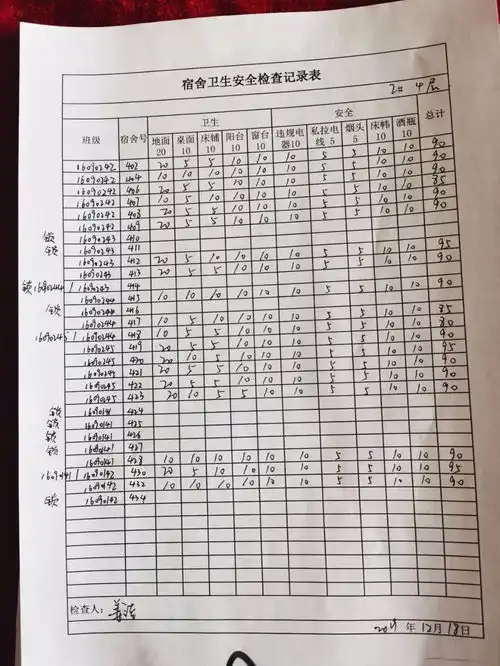 宿舍卫生安全检查记录表
2# 4层
班级 宿舍号 卫生 安全 总计
地面 20 桌面 10 床铺 10 阳台 10 窗台 10 违规电器10 私拉电线 5 烟头 5 床帏 10 酒瓶 10
16090242 403 20 5 5 10 10 10 5 5 10 10 90
16090242 404 10 10 10 10 10 10 5 5 10 10 90
16090242 406 20 5 5 10 10 10 5 5 10 10
16090242 407 10 5 10 10 10 10 5 5 10 10
16090242 408 20 5 5 10 10 10 5 5 10 10 90
16090242 409 20 5 5 10 10 10 5 5 10 10 90
锁 16090243 410
锁 16090243 411
16090243 412 20 5 10 10 10 10 5 5 10 10 95
16090243 413 20 5 5 10 10 10 5 5 10 10 90
锁 16090244 / 16090243 414
16090244 415 10 10 10 10 10 10 5 5 10 10 90
锁 16090244 416
16090244 417 10 5 10 10 10 10 5 5 10 10 85
16090245 / 16090244 418 10 5 5 10 10 10 5 5 10 10 80
16090245 419 20 5 5 10 10 10 5 5 10 10 90
16090245 420 20 10 5 10 10 10 5 5 10 10 95
16090245 421 20 5 5 10 10 10 5 5 10 10 90
16090245 422 20 5 5 10 10 10 5 5 10 10 90
16090245 423 20 10 5 5 10 10 5 5 10 10 90
锁 16090141 424
锁 16090141 425
锁 16090141 426
锁 16090141 427
16090141 428 10 10 10 10 10 10 5 5 10 10 90
16090141 / 16090142 430 20 5 10 10 10 10 5 5 10 10 95
16090142 432 10 10 10 10 10 10 5 5 10 10 90
锁 16090142 434
检查人：
年 12月 18日